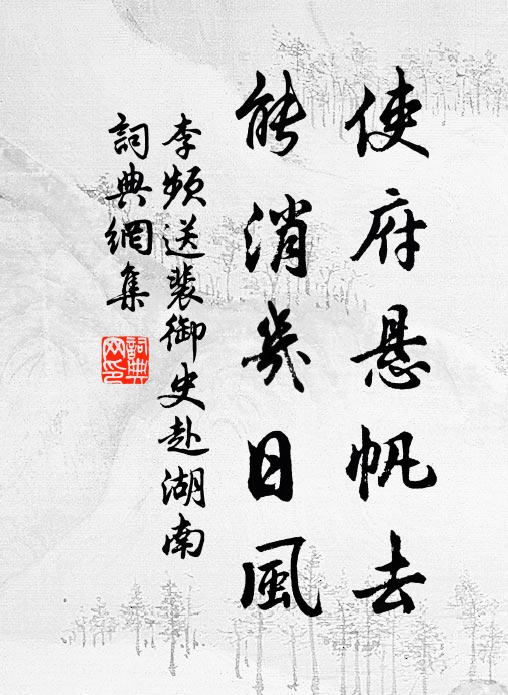 使府悬帆去
能消幾日風
李频送裴御史赴湖南
詞典網集
詞典網印